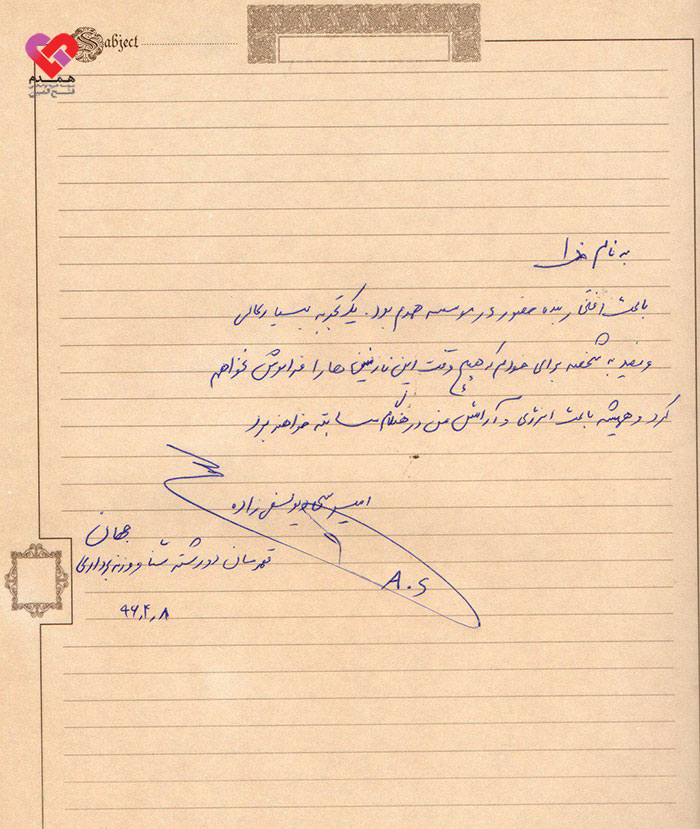 Subject
همدم
فتح المبین
به نام خدا
باعث افتخار بنده حضور در موسسه همدم بود. یک تجربه بسیار عالی
و مفید به شخصه برای خودم که هیچ وقت این نازنین ها را فراموش نخواهم
کرد و همیشه باعث انرژی و آرامش من در هنگام مسابقه خواهند بود
امیر یوسف زاده
قهرمان دو رشته شنا و وزنه برداری
جهان
A.S
۹۶،۴،۸